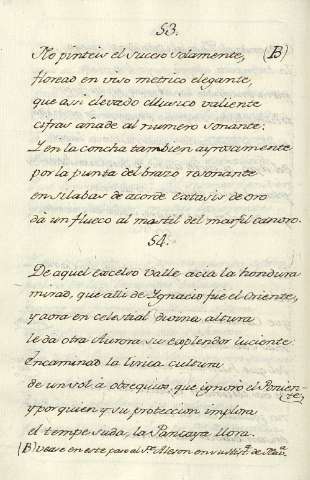 53.
No pinteis el suceso solamente, (B)
floread en viso metrico elegante,
que assi elevado el Musico valiente
cifras añade al numero sonante.
Y en la concha tambien ayrosamente
por la punta del brazo resonante
en silabas de acorde extasis de oro
dà un flueco al mastil del marfil canoro.
54.
De aquel excelso Valle acia la hondura
mirad, que alli de Ignacio fuè el Oriente,
y aora en celestial divina altura
le da otra Aurora su explendor luciente
Encaminad la lirica cultura
de un sol à obsequios, que ignorò el Ponien-
te,
y por quien y su proteccion implora
el tempe suda, la Pancaya llora.
(B) vease en este paso al Pe. Aleson en su Histª. de Navª.